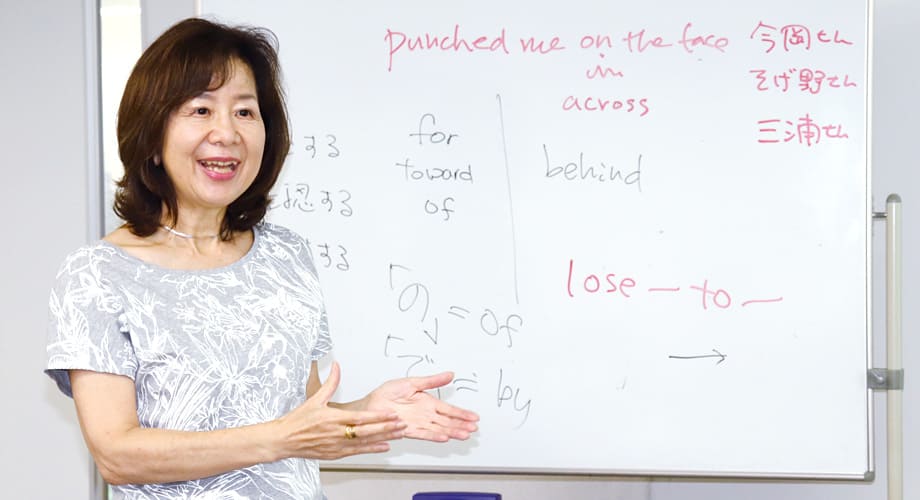 punched me on the face
in
across
今岡さん
そげ野さん
三浦さん
する
認する
する
for
toward
of
behind
「の」= of
「で」≒ by
lose — to —
→